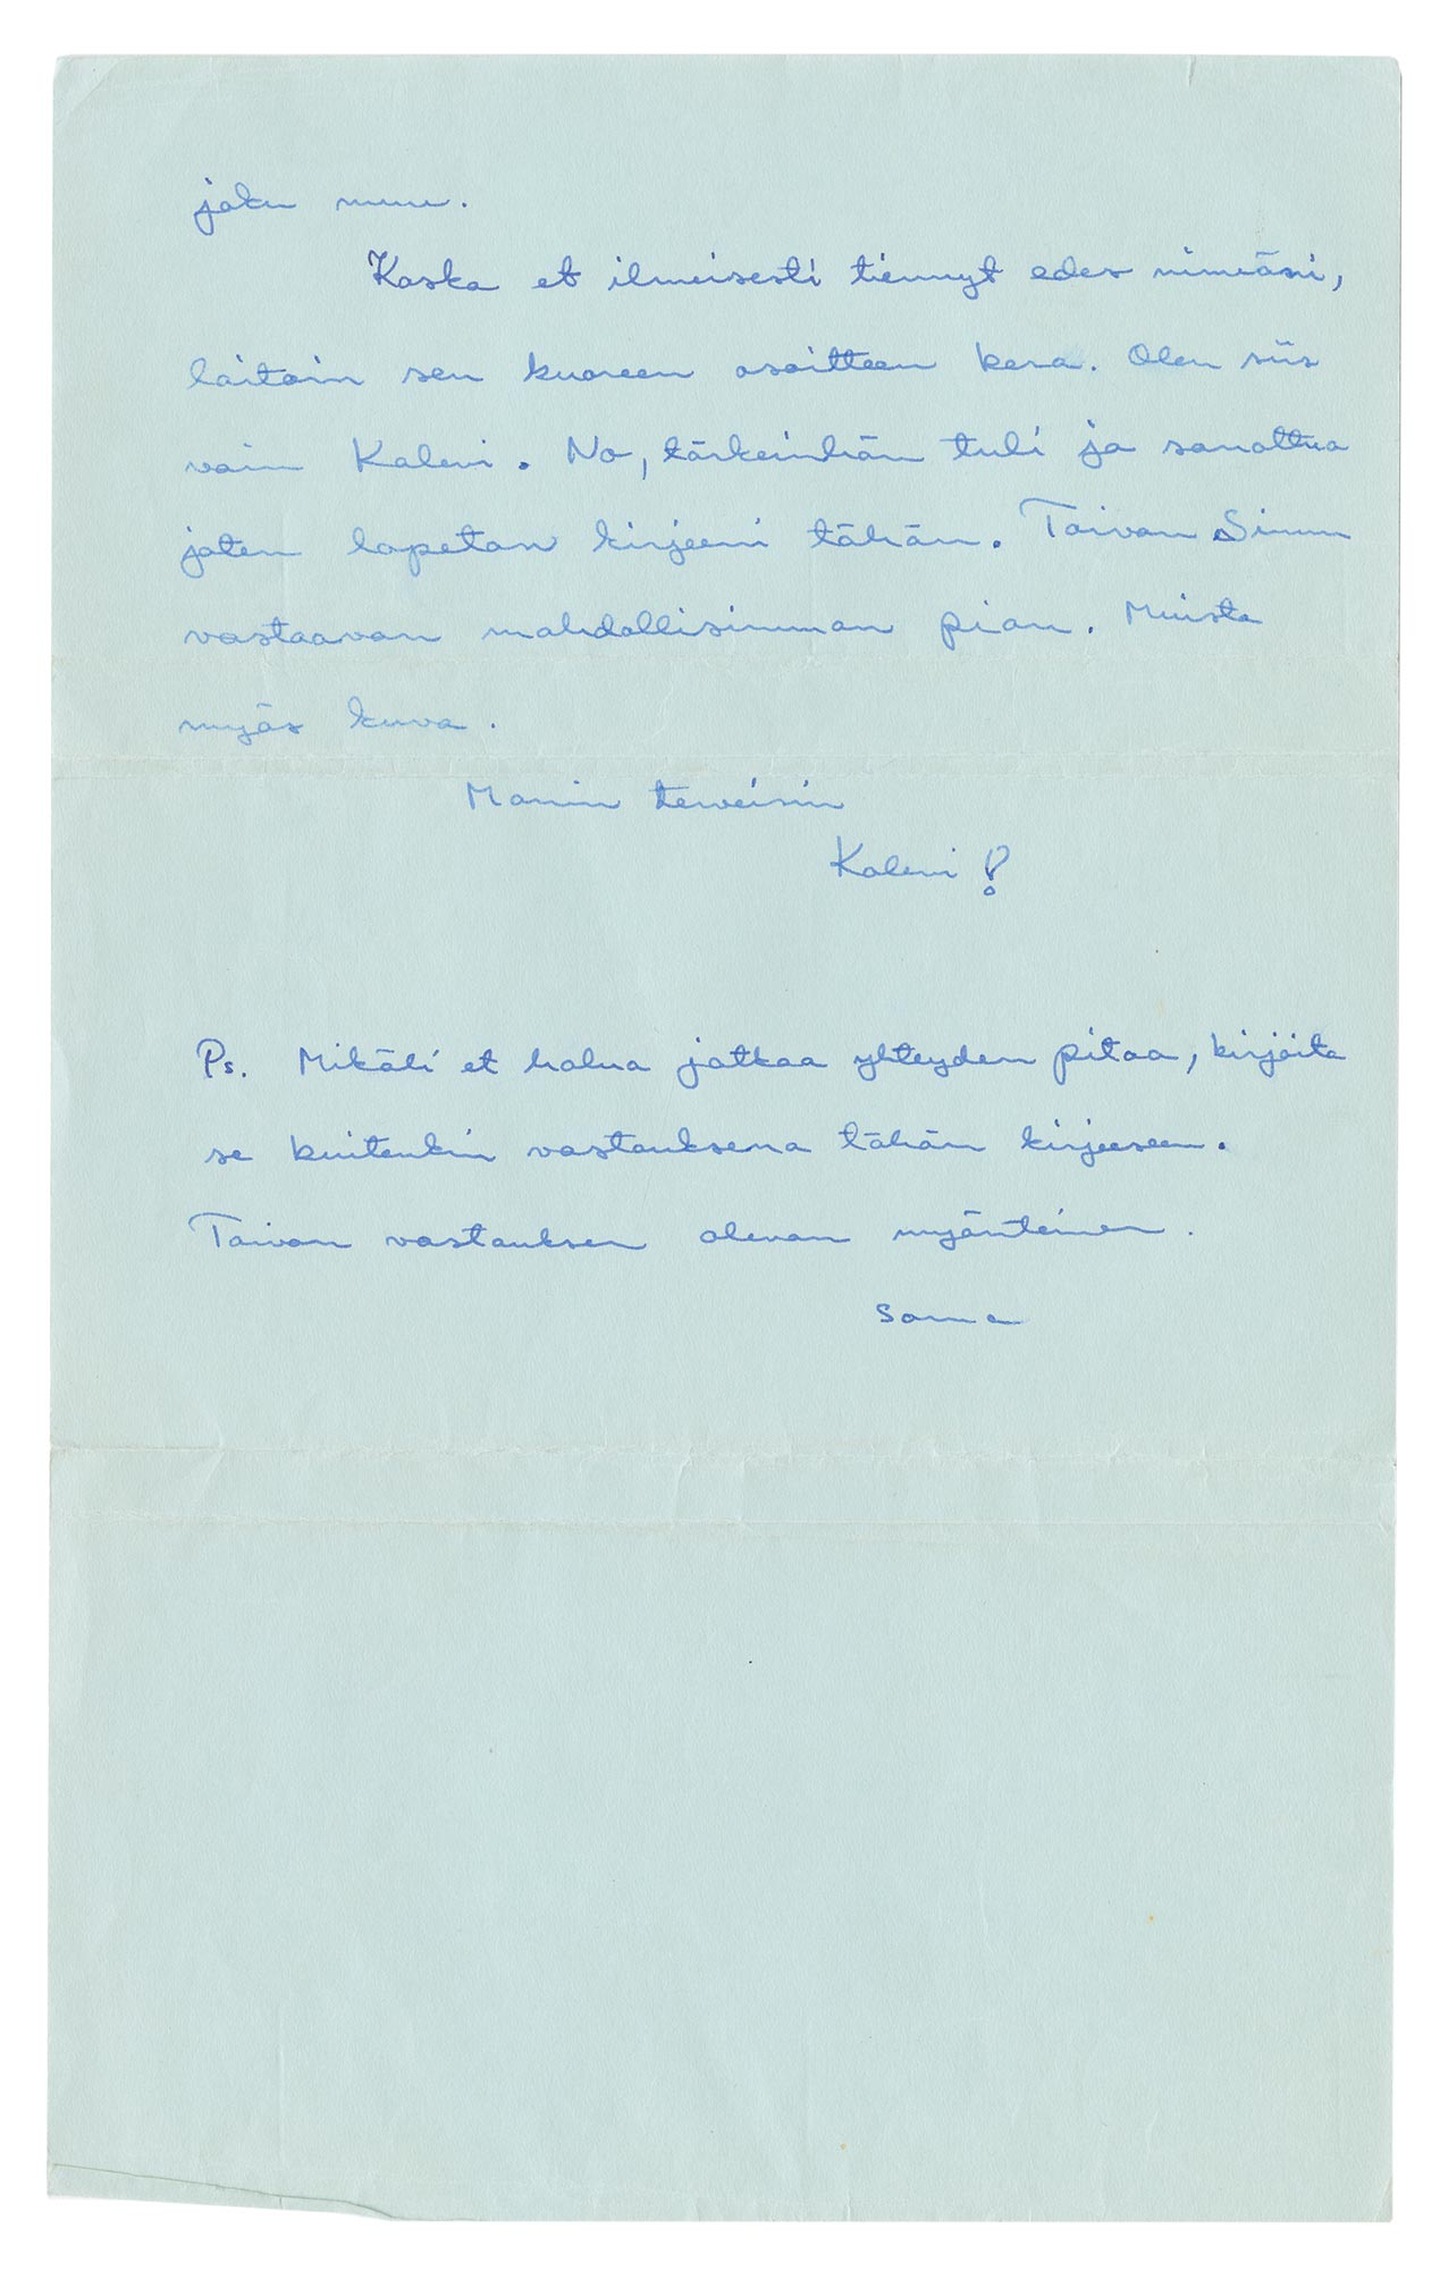 joku muu.
Koska et ilmeisesti tiennyt edes nimeäni,
laitoin sen kuoreen osoitteen kera. Olen siis
vain Kalevi. No, tärkeinhän tuli jo sanottua
joten lopetan kirjeeni tähän. Toivon Sinun
vastaavan mahdollisimman pian. Muista
myös kuva.
Monin terveisin
Kalevi!
Ps. Mikäli et halua jatkaa yhteyden pitoa, kirjoita
se kuitenkin vastauksena tähän kirjeeseen.
Toivon vastauksen olevan myönteinen.
Sama